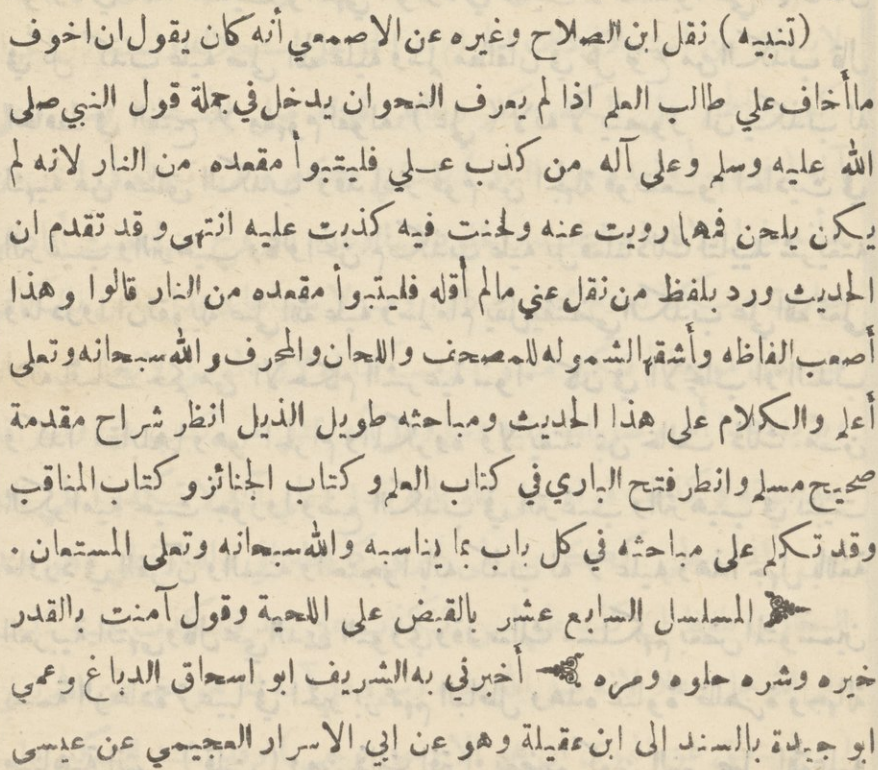 (تنبيه) نقل ابن الصلاح وغيره عن الاصمعي أنه كان يقول ان اخوف
ماأخاف علي طالب العلم اذا لم يعرف النحو ان يدخل في جملة قول النبي صلى
الله عليه وسلم وعلى آله من كذب عـلي فليتبوأ مقعده من النار لانه لم
يكن يلحن فمهما رويت عنه ولحنت فيه كذبت عليه انتهى وقد تقدم ان
الحديث ورد بلفظ من نقل عني مالم أقله فليتبوأ مقعده من النار قالوا وهذا
أصعب الفاظه وأشقها لشموله للمصحف واللحان والمحرف والله سبحانه وتعلى
أعلم والكلام على هذا الحديث ومباحثه طويل الذيل انظر شراح مقدمة
صحيح مسلم وانظر فتح الباري في كتاب العلم وكتاب الجنائز وكتاب المناقب
وقد تكلم على مباحثه في كل باب بما يناسبه والله سبحانه وتعلى المستعان .
المسلسل السابع عشر بالقبض على اللحية وقول آمنت بالقدر
خيره وشره حلوه ومره أخبرني به الشريف ابو اسحاق الدباغ وعمي
ابو جيدة بالسند الى ابن عقيلة وهو عن ابي الاسرار العجيمي عن عيسى